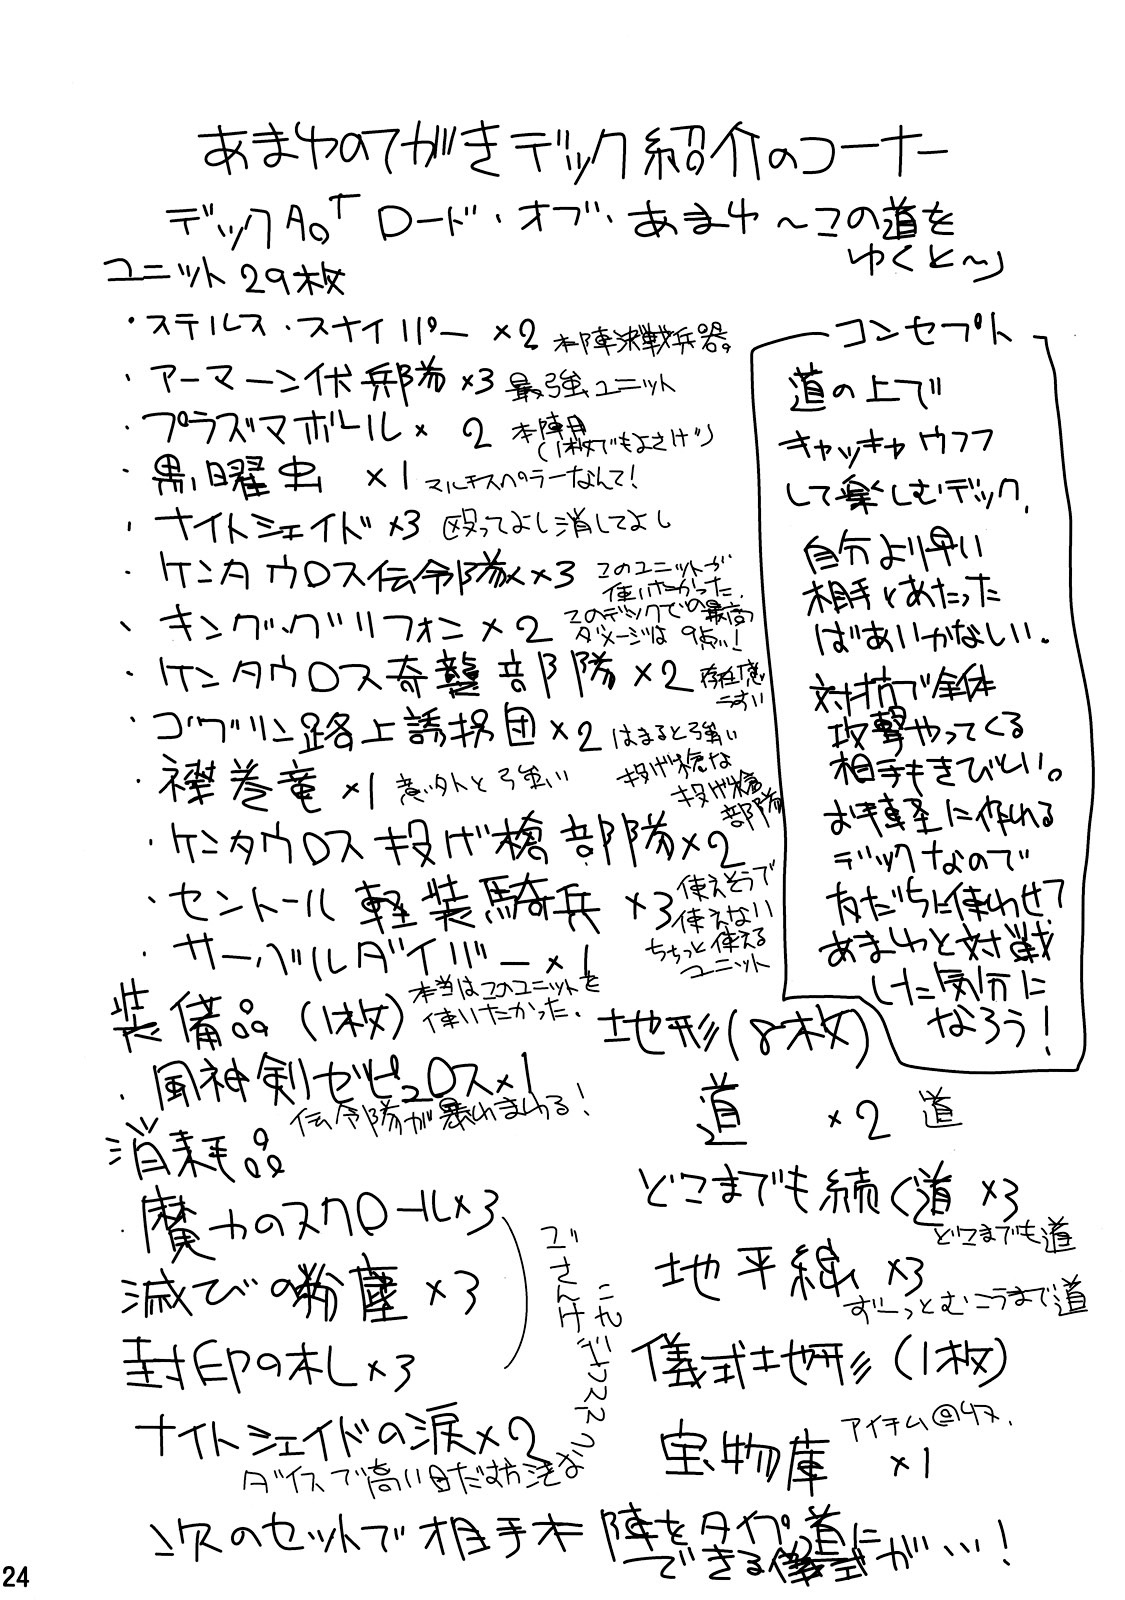 あまわのてがきデック紹介のコーナー
デックA。「ロード・オブ・あまわ〜この道を
ゆくと〜」
ユニット 29枚
・ステルス・スナイパー ×2 本陣決戦兵器。
・アーマーン伏兵部隊 ×3 最強ユニット
・プラズマボール × 2 本陣用
(1枚でもよさげ")
・黒曜虫 ×1 マルチスペラーなんて!
・ナイトシェイド ×3 殴ってよし消してよし
・ケンタウロス伝令部隊 ×3 このユニットが
使いたかった。
・キング・グリフォン×2 このデックでの最高
ダメージは9点!
・ケンタウロス奇襲部隊×2 存在感
うすい
・ゴブリン路上誘拐団×2 はまると強い
・襷巻竜 ×1 意外と強い
投げ槍な
投げ槍
部隊
・ケンタウロス投げ槍部隊×2
・セントール軽装騎兵 ×3 使えそうで
使えない
ちょっと使える
ユニット
・サーベルダイバー×1
本当はこのユニットを
使いたかった。
装備品 (1枚)
・風神剣ゼピュロス×1
伝令部隊が暴れまわる!
消耗品
・魔力のスクロール×3
滅びの粉塵 ×3
封印の札×3
ナイトシェイドの涙×2
ダイスで高い目だす方法な
コンセプト
道の上で
キャッキャウフフ
して楽しむデック。
自分より早い
相手とあたった
ばあいかなしい。
対抗で全体
攻撃やってくる
相手もきびしい。
お手軽に作れる
デックなので
友だちに使わせて
あまわと対戦
した気分に
なろう!
地形(8枚)
道 ×2 道
どこまでも続く道 ×3
どこまでも道
地平線 ×3
ずーっとむこうまで道
儀式地形 (1枚)
宝物庫 ×1
次のセットで相手本陣をタイプ道に
できる儀式が…!
24